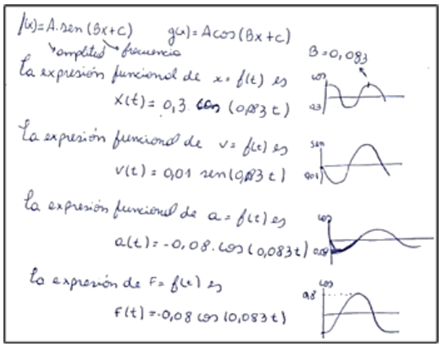 f(x)=A.sen(Bx+C) g(x)=Acos(Bx+C)
amplitud frecuencia B=0,083
La expresión funcional de x=f(t) es cos
x(t)=0,3 cos (0,083t) 0,3
La expresión funcional de v=f(t) es sen
v(t)=0,01 sen(0,083t) 0,01
La expresión funcional de a=f(t) es cos
a(t)=-0,08.cos(0,083t) 0,08
La expresión de F=f(t) es cos
F(t)=-0,08 cos(0,083t) 0,8